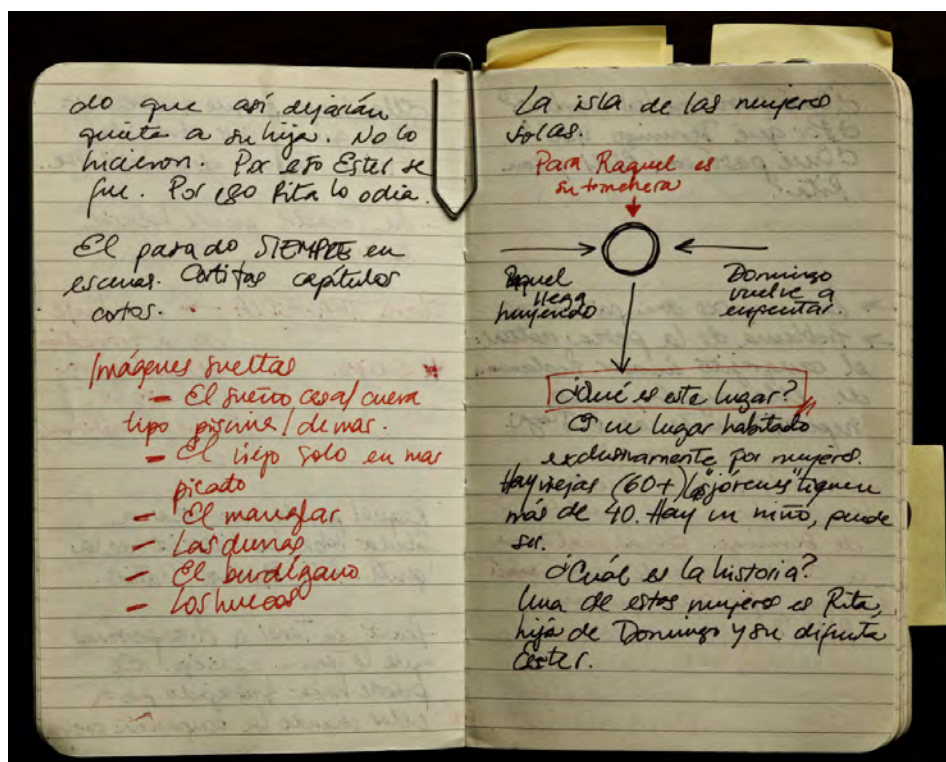 do que así dejarían
quieta a su hija. No lo
hicieron. Por eso Ester se
fue. Por eso Rita lo odia.
El pasado SIEMPRE en
escenas. Cortitas capítulos
cortos.
Imágenes sueltas
– El sueño casa/cueva
tipo piscina/de mar.
– El viejo solo en mar
picado
– El manglar
– Las dunas
– El burdégano
– Los huecos
La isla de las mujeres
solas.
Para Raquel es
su trinchera
Raquel
llega
huyendo
Domingo
vuelve a
enfrentar.
¿Qué es este lugar?
Es un lugar habitado
exclusivamente por mujeres.
Hay viejas (60+) Las "jóvenes" tienen
más de 40. Hay un niño, puede
ser.
¿Cuál es la historia?
Una de estas mujeres es Rita,
hija de Domingo y su difunta
Ester.